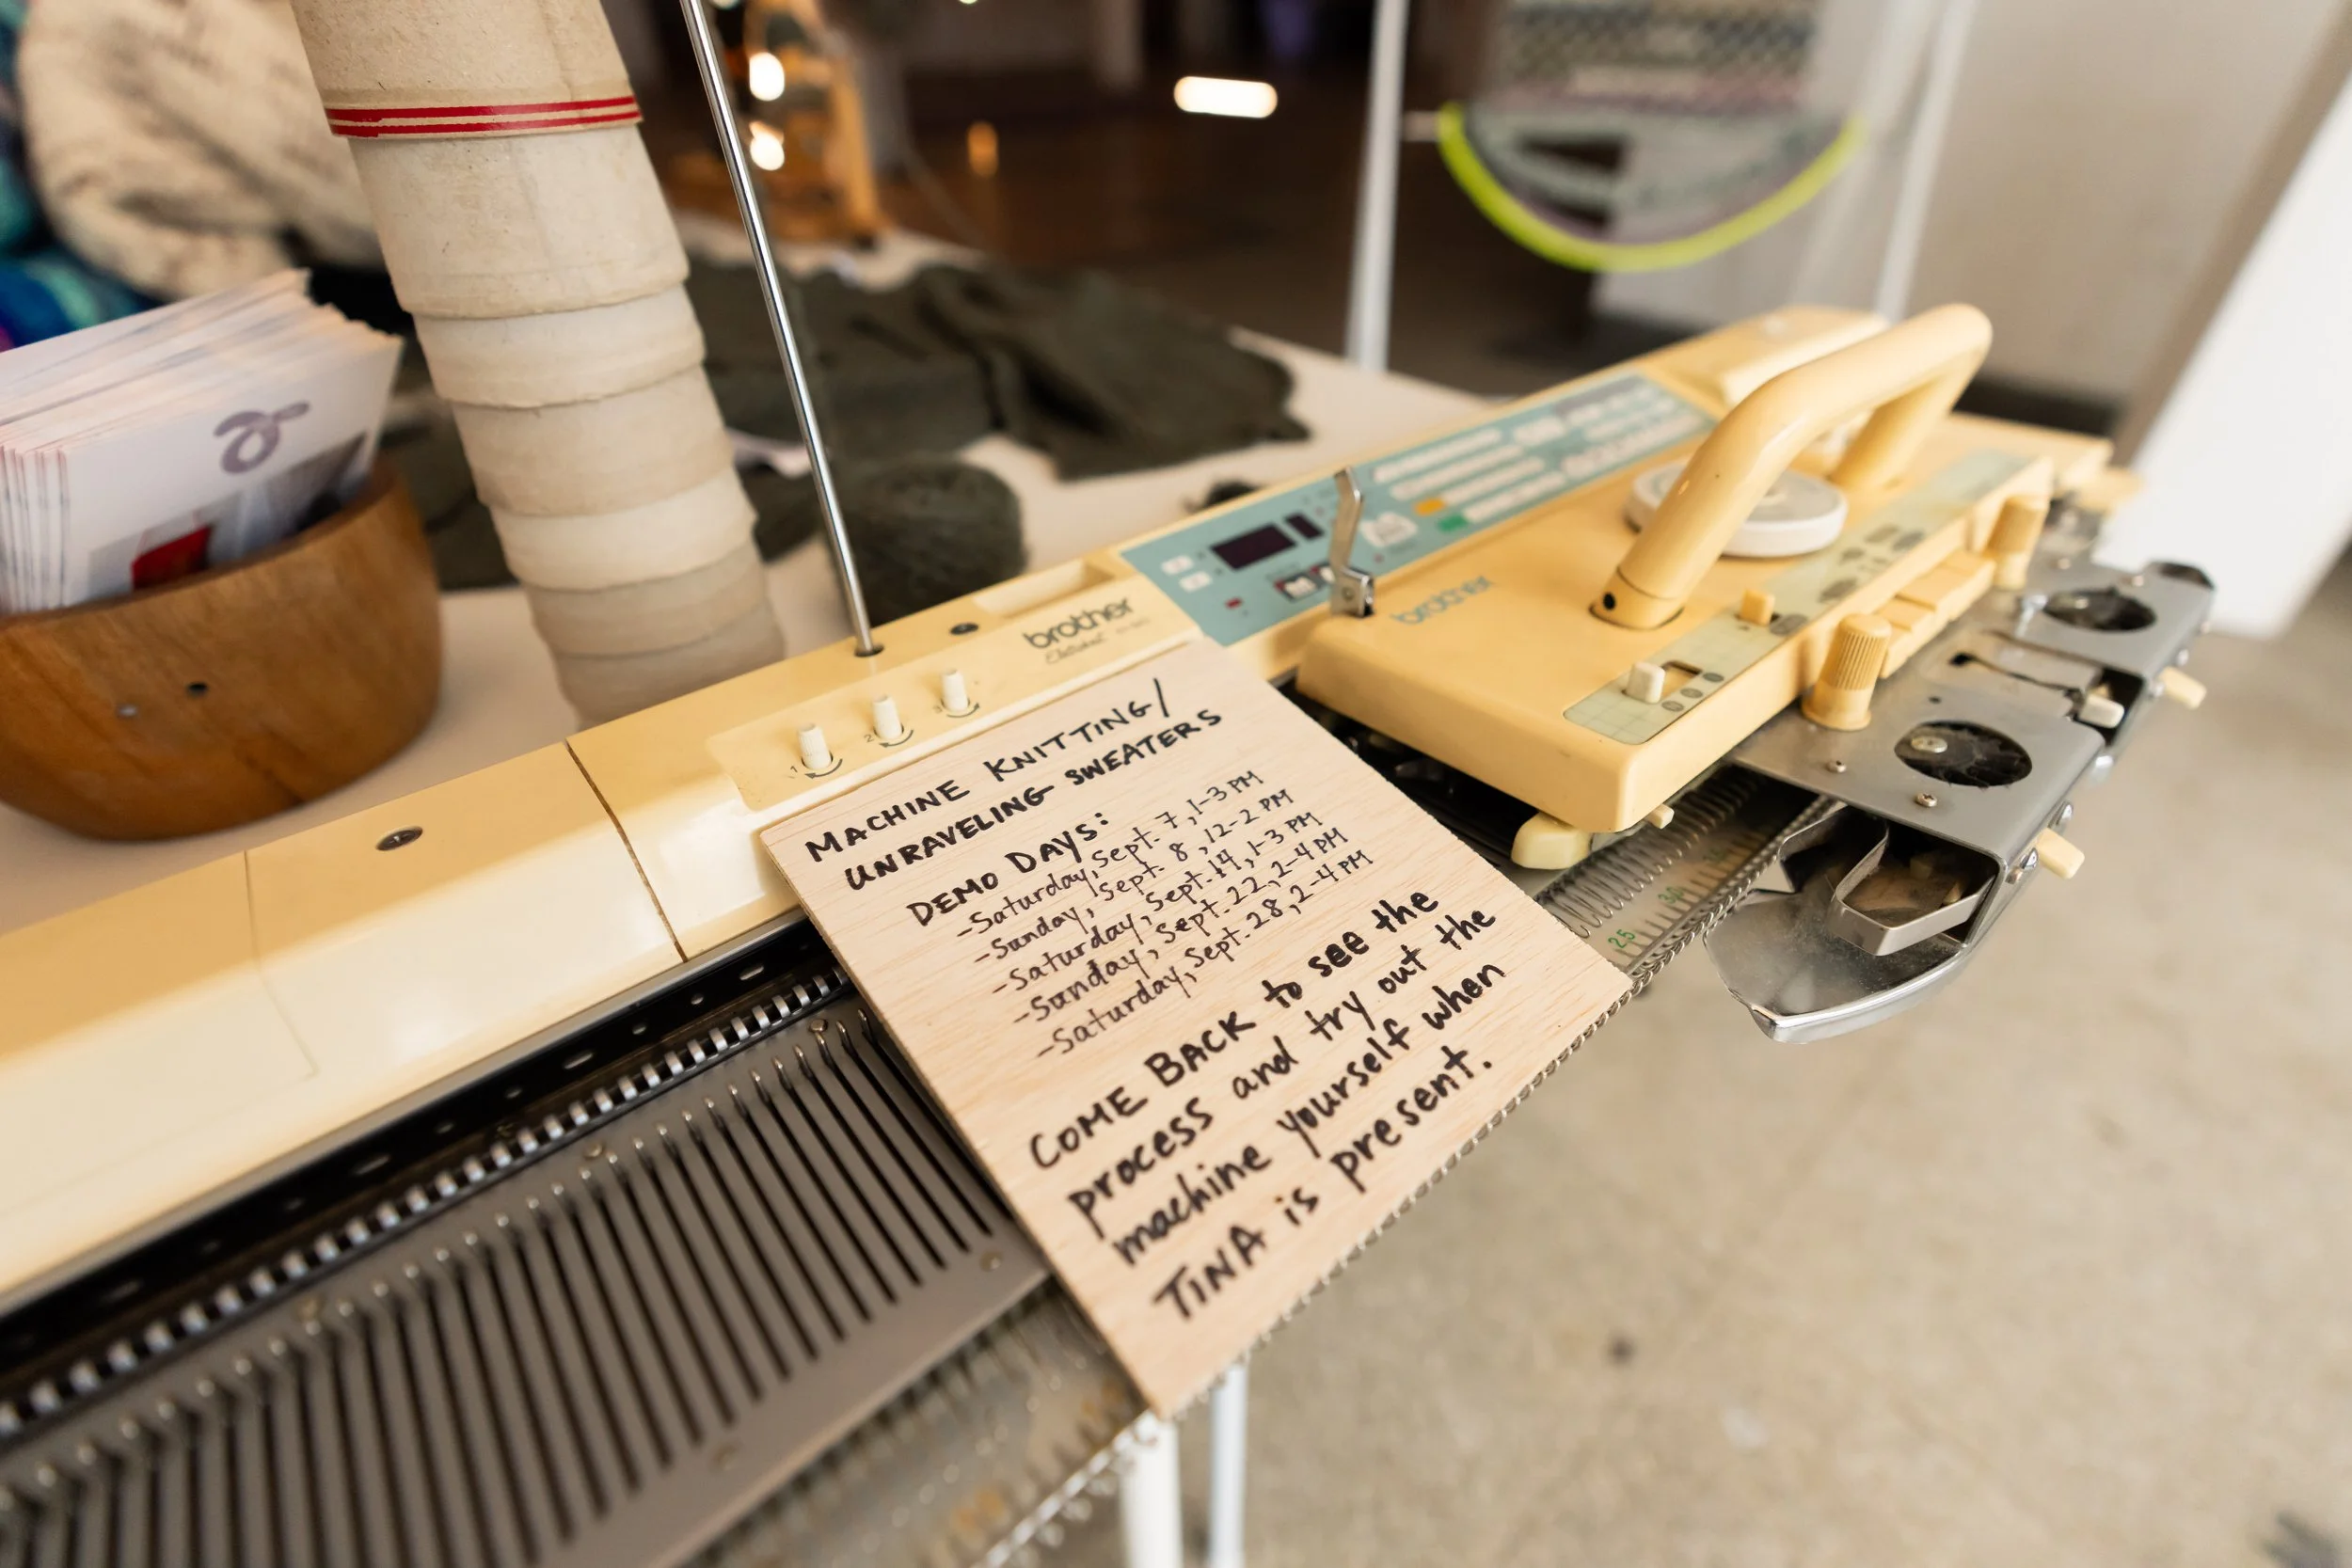 brother
Electroknit
brother
1
2
3
MACHINE KNITTING/
UNRAVELING SWEATERS
DEMO DAYS:
-Saturday, Sept. 7, 1-3 PM
-Sunday, Sept. 8, 12-2 PM
-Saturday, Sept. 14, 1-3 PM
-Sunday, Sept. 22, 2-4 PM
-Saturday, Sept. 28, 2-4 PM
COME BACK to see the
process and try out the
machine yourself when
TINA is present.
25
30